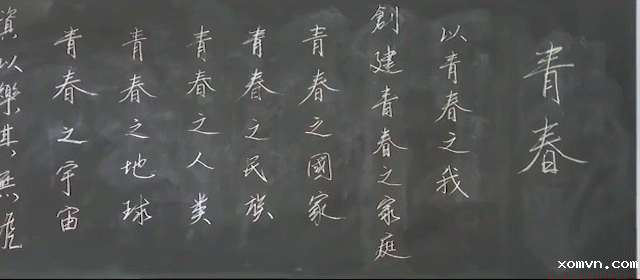 青春
以青春之我
創建青春之家庭
青春之國家
青春之民族
青春之人类
青春之地球
青春之宇宙
資以樂其無涯
xomvn.com